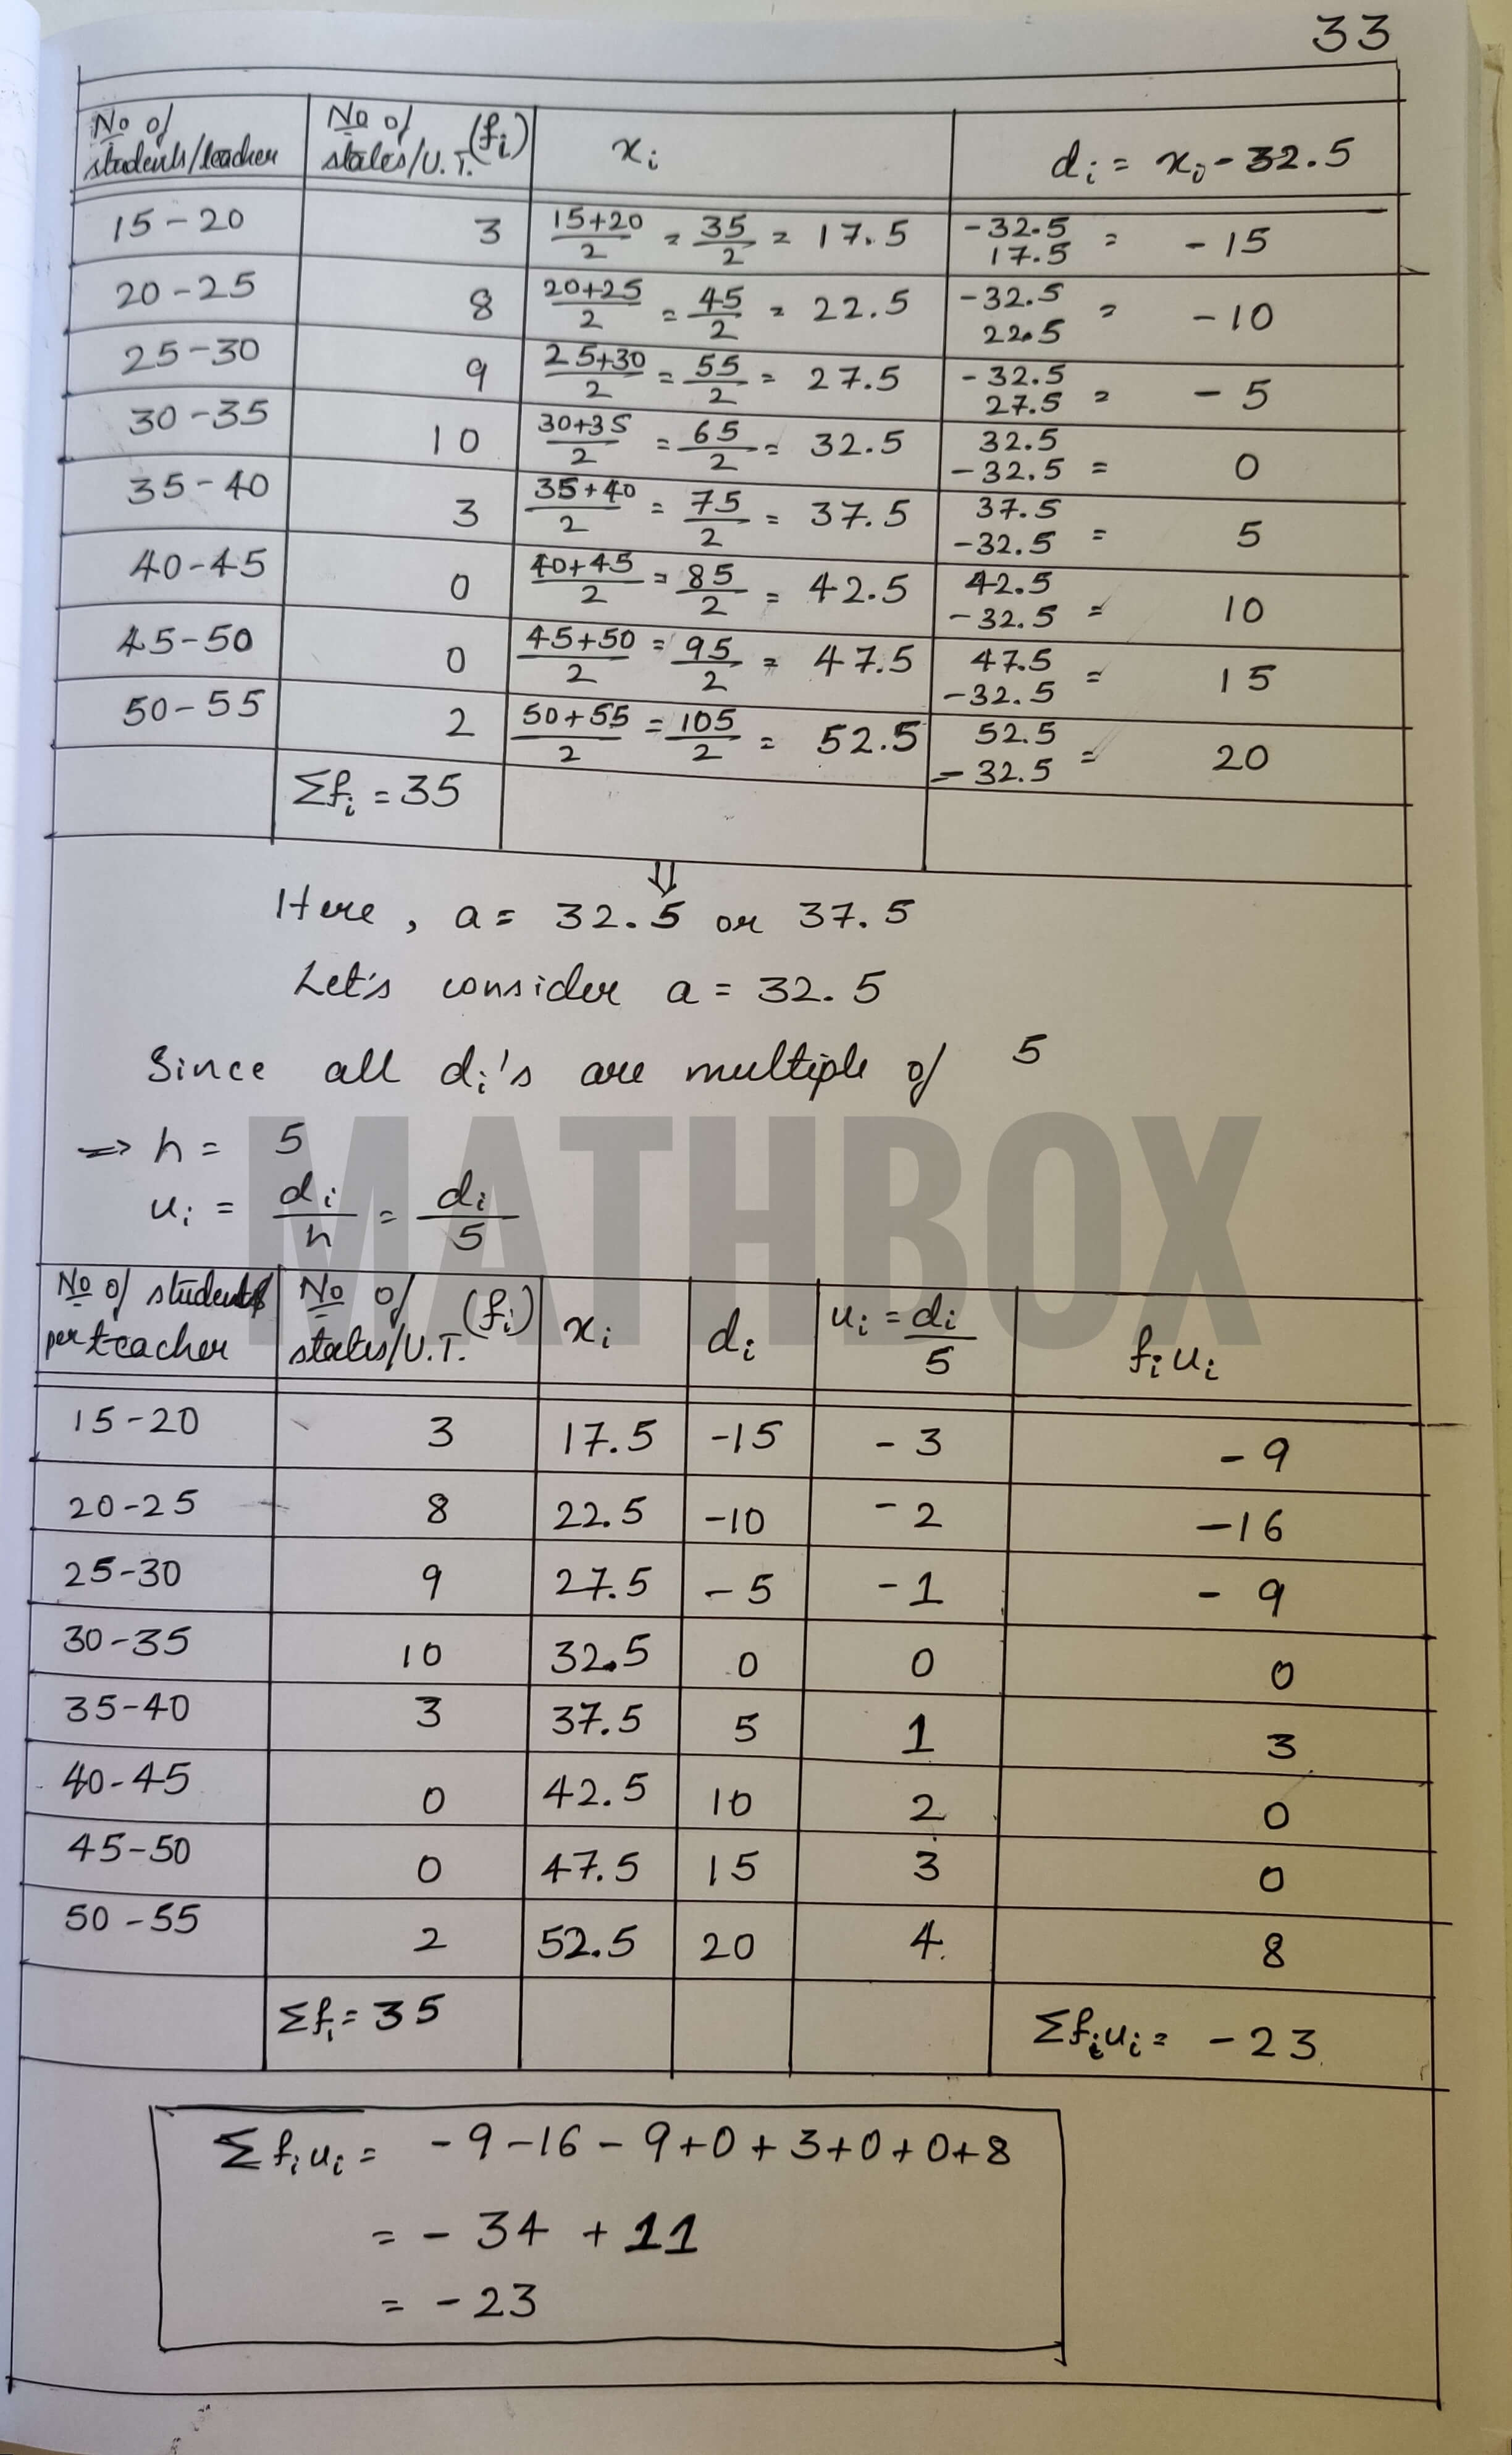 33
No of students/teacher | No of states/U.T. (fi) | xi | di = xi - 32.5
15-20 | 3 | 15+20/2 = 35/2 = 17.5 | -32.5 17.5 = -15
20-25 | 8 | 20+25/2 = 45/2 = 22.5 | -32.5 22.5 = -10
25-30 | 9 | 25+30/2 = 55/2 = 27.5 | -32.5 27.5 = -5
30-35 | 10 | 30+35/2 = 65/2 = 32.5 | 32.5 -32.5 = 0
35-40 | 3 | 35+40/2 = 75/2 = 37.5 | 37.5 -32.5 = 5
40-45 | 0 | 40+45/2 = 85/2 = 42.5 | 42.5 -32.5 = 10
45-50 | 0 | 45+50/2 = 95/2 = 47.5 | 47.5 -32.5 = 15
50-55 | 2 | 50+55/2 = 105/2 = 52.5 | 52.5 -32.5 = 20
Σfi = 35
⇓
Here, a = 32.5 or 37.5
Let's consider a = 32.5
Since all di's are multiple of 5
⇒ h = 5
ui = di/h = di/5
MATHBOX
No of students per teacher | No of states/U.T. (fi) | xi | di | ui = di/5 | fiui
15-20 | 3 | 17.5 | -15 | -3 | -9
20-25 | 8 | 22.5 | -10 | -2 | -16
25-30 | 9 | 27.5 | -5 | -1 | -9
30-35 | 10 | 32.5 | 0 | 0 | 0
35-40 | 3 | 37.5 | 5 | 1 | 3
40-45 | 0 | 42.5 | 10 | 2 | 0
45-50 | 0 | 47.5 | 15 | 3 | 0
50-55 | 2 | 52.5 | 20 | 4 | 8
Σfi = 35 | Σfiui = -23
Σfiui = -9-16-9+0+3+0+0+8
= -34 + 11
= -23